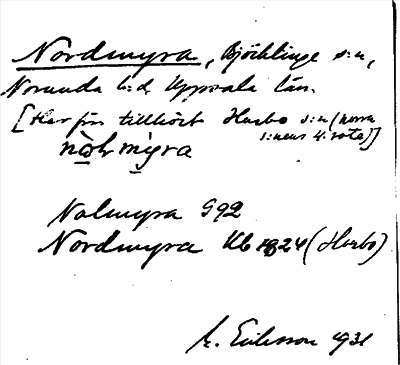 Nordmyra, Björklinge s:n,
Norunda h:d, Uppsala län.
[Har förr tillhört Harbo s:n (norra
s:nens 4:e rota)]
Nolmyra G92
Nordmyra Kb 1824 (Harbo)
Eriksson 1931